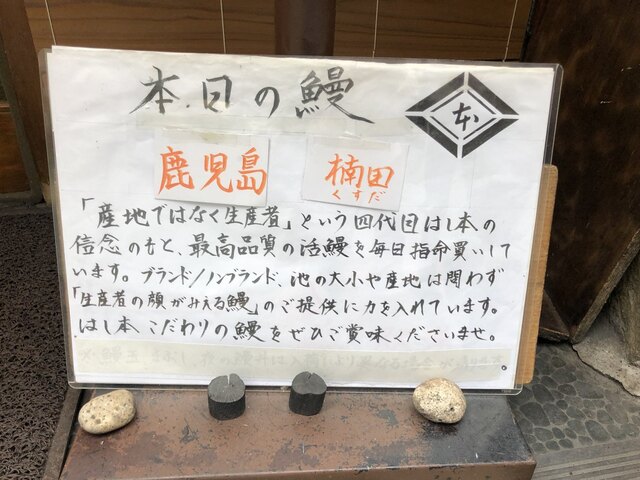 本日の鰻
本
鹿児島 楠田
くすだ
「産地ではなく生産者」という四代目はし本の
信念のもと、最高品質の活鰻を毎日指命買いして
います。ブランド/ノンブランド、池の大小や産地は問わず
「生産者の顔がみえる鰻」のご提供に力を入れています。
はし本こだわりの鰻をぜひご賞味くださいませ。